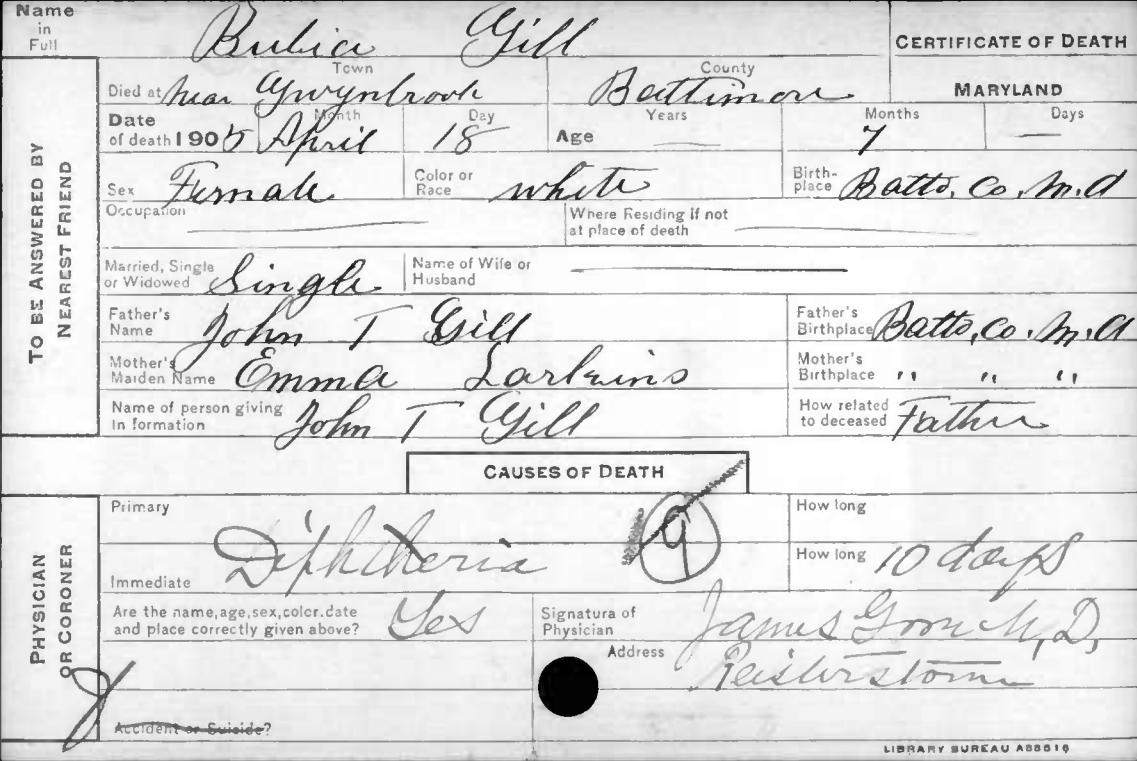 Name in Full Bubia Gill
CERTIFICATE OF DEATH
Died at near Gwynbrook Town Baltimore County
MARYLAND
Date of death 1905 April Month 18 Day Age Years — 7 Months — Days
Sex Female Color or Race white Birth-place Balto. Co. M.d
Occupation Where Residing if not at place of death
Married, Single or Widowed Single Name of Wife or Husband
Father's Name John T Gill Father's Birthplace Balto. Co. M.d
Mother's Maiden Name Emma Larkins Mother's Birthplace " " "
Name of person giving In formation John T Gill How related to deceased Father
TO BE ANSWERED BY NEAREST FRIEND
CAUSES OF DEATH
Primary How long
Immediate Diphtheria 9 How long 10 days
Are the name, age, sex, color. date and place correctly given above? Yes
Signatura of Physician James M, D,
Address Reisterstown
Accident or Suicide?
PHYSICIAN OR CORONER
LIBRARY BUREAU A88516